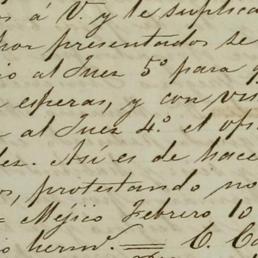 os á V. y le suplica
hor presentados se
io al Juez 5º para q
esperas, y con vis
al Juez 4º el ofi
dez. Así es de hace
os, protestando no
= Méjico Febrero 10
io herm.º = C. Co